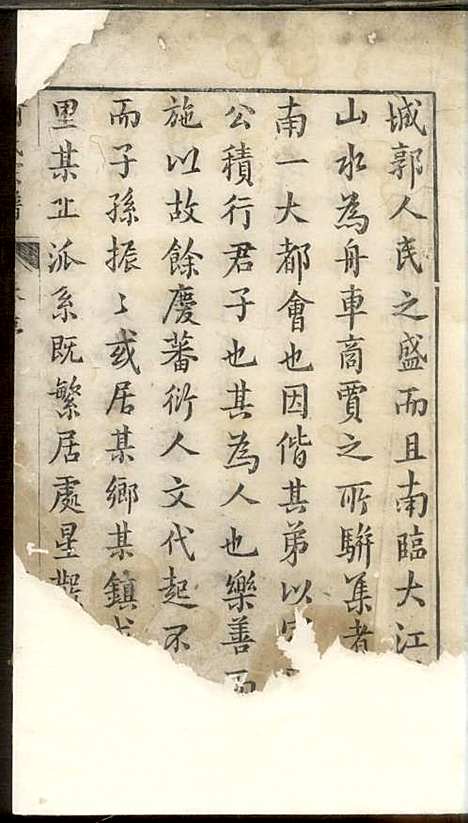 城郭人民之盛而且南臨大江
山水為舟車商賈之所駢集者
南一大都會也因偕其弟以
公積行君子也其為人也樂善而
施以故餘慶蕃衍人文代起不
而子孫振〻或居某鄉某鎮或
里某㐀派系既繁居處星